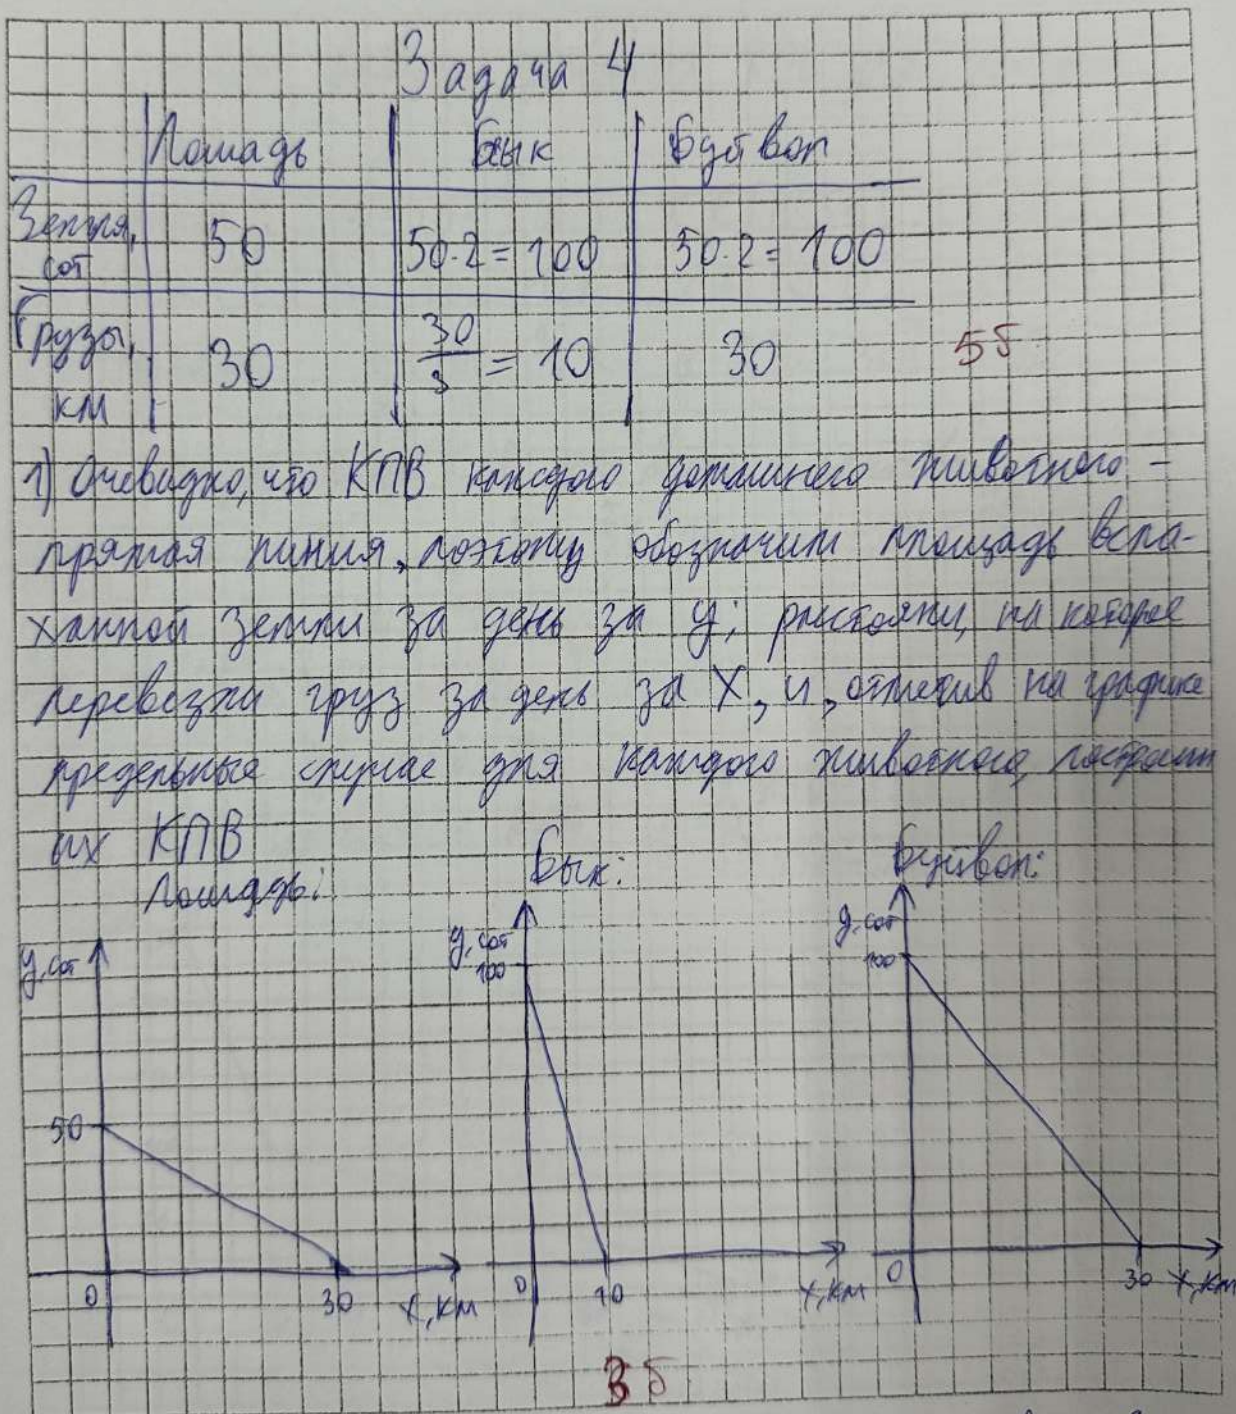 Задача 4
Лошадь Бык Буйвол
Земля, сот 50 50·2=100 50·2=100
Грузы, км 30 30/3 = 10 30 5б
1) Очевидно, что КПВ каждого домашнего животного –
прямая линия, поэтому обозначим площадь вспа-
ханной земли за день за y; расстояни, на которое
перевезли груз за день за X, и, отметив на графике
предельные случае для каждого животного, построим
их КПВ
Лошадь: Бык: Буйвол:
y, сот y, сот y, сот
100 100
50
0 30 x, км 0 10 x, км 0 30 x, км
3б